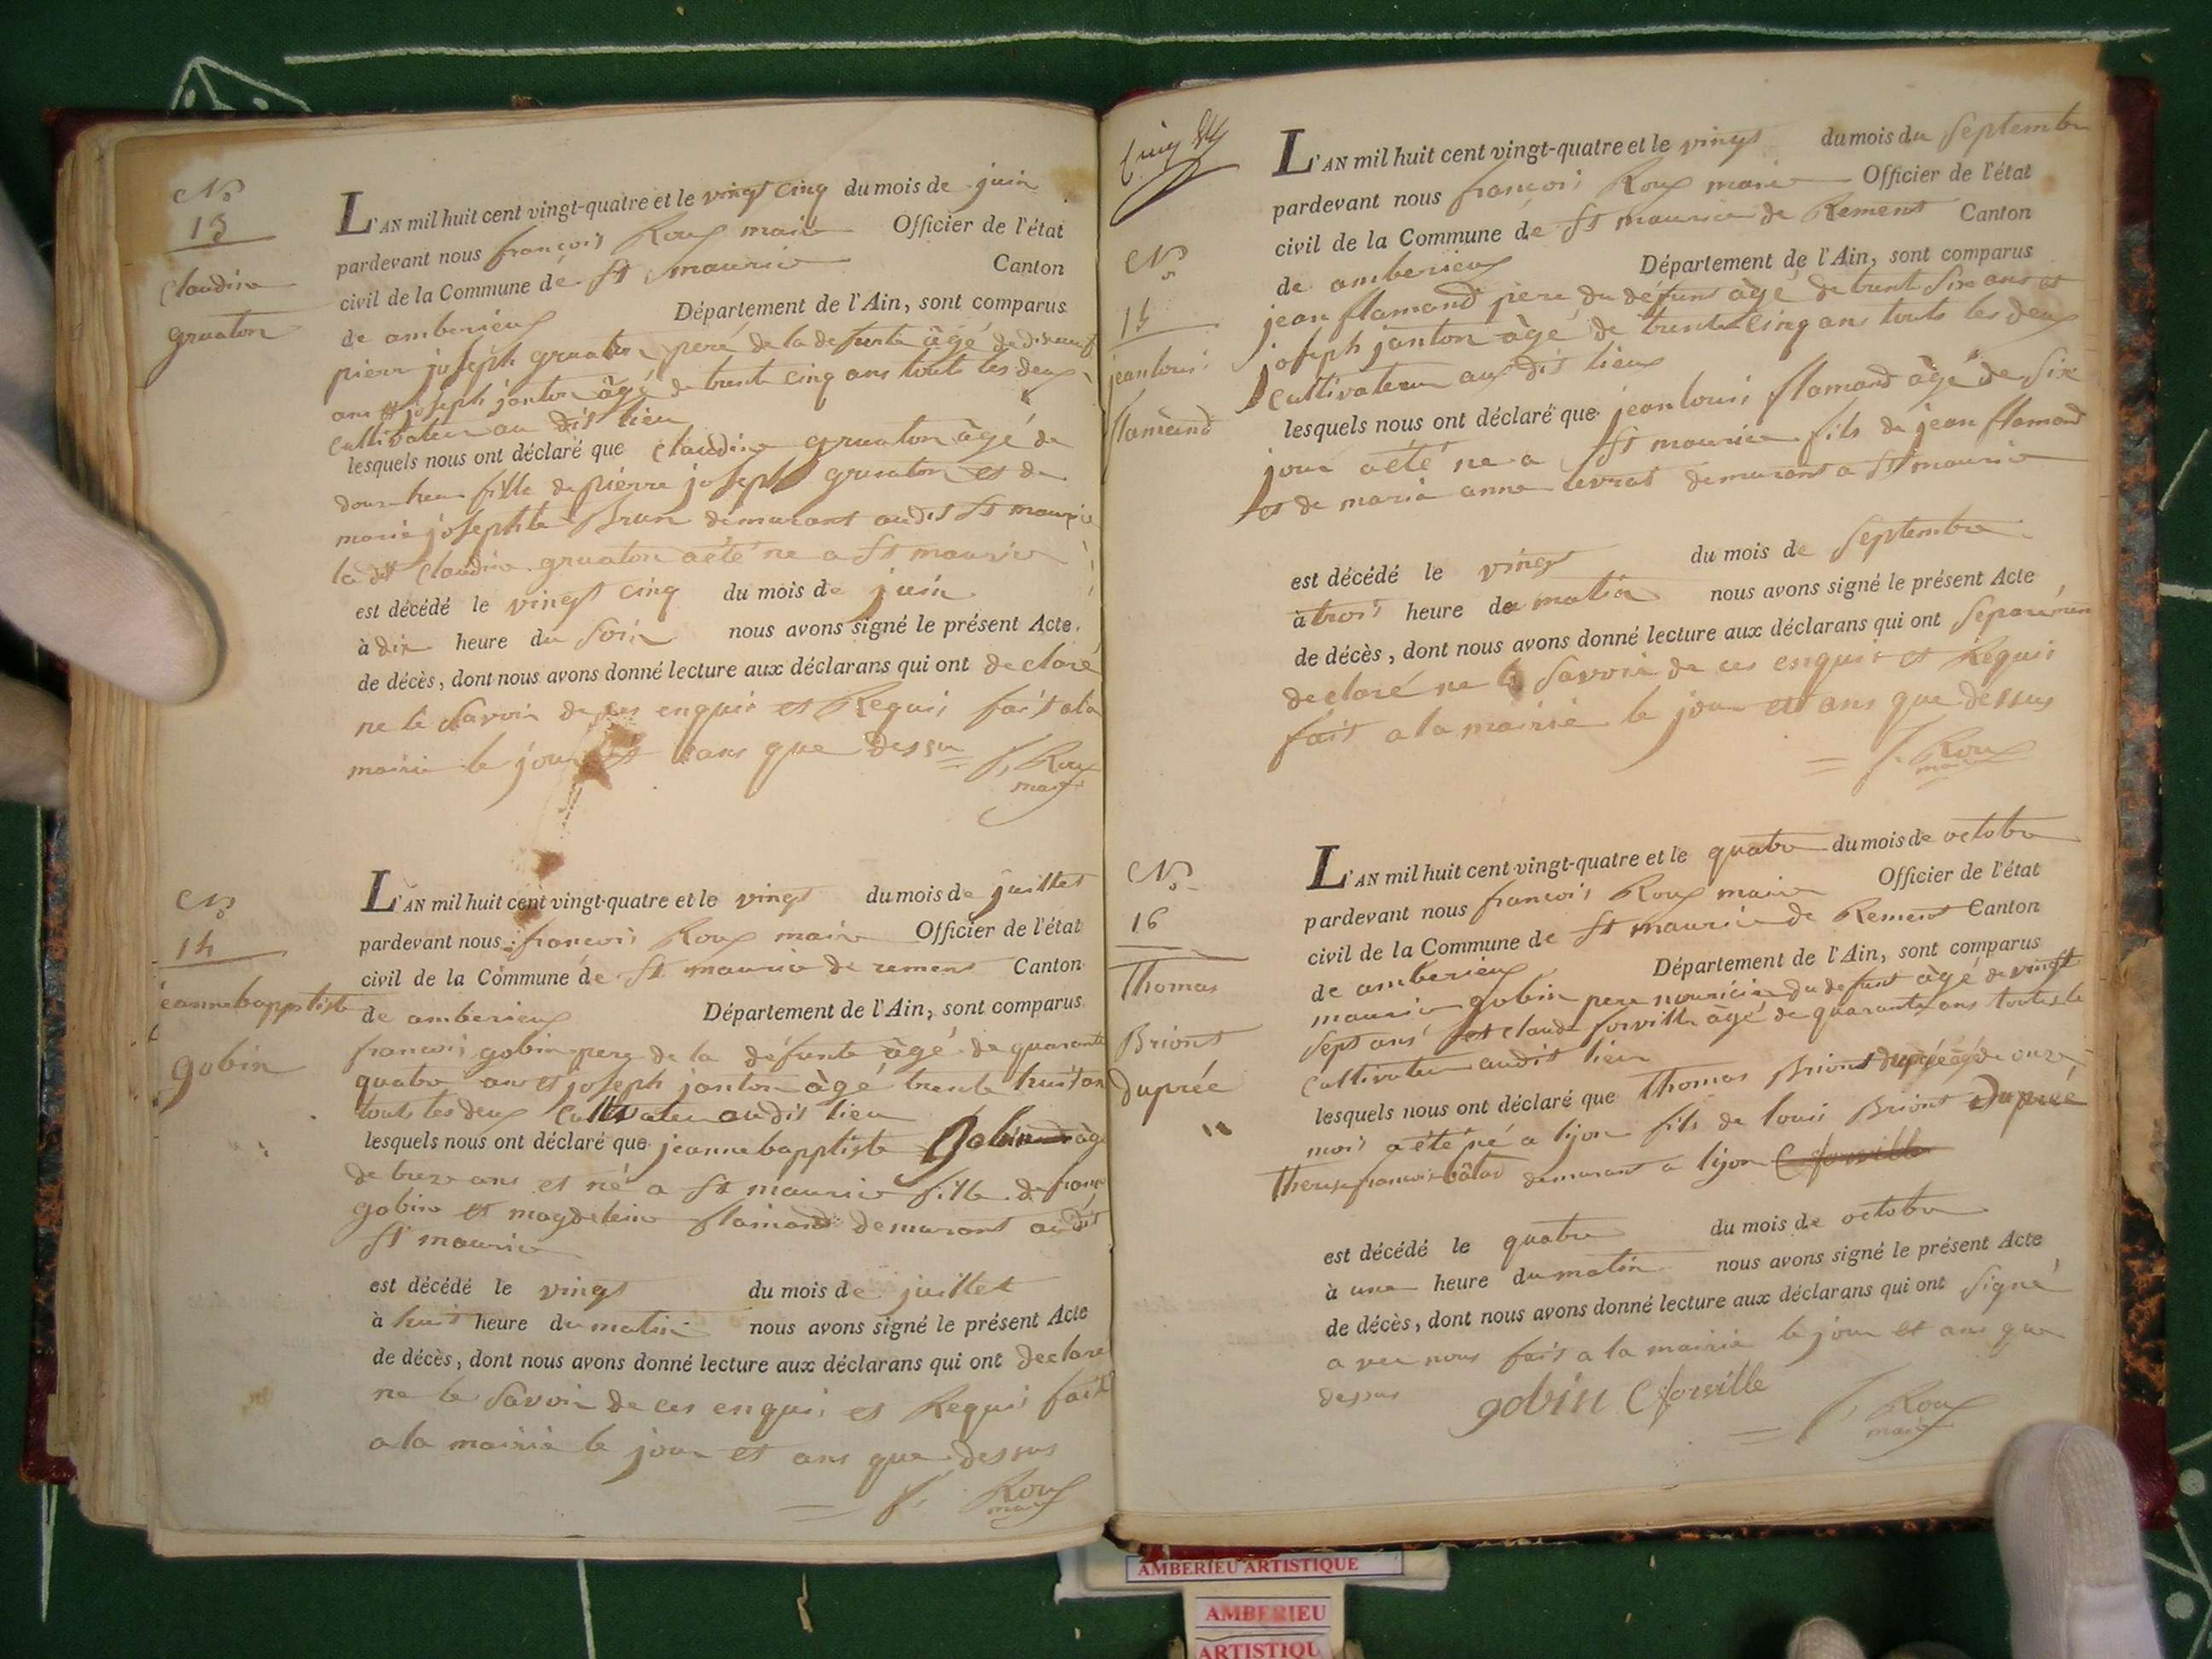 No
13
Claudine
gruaton
L'AN mil huit cent vingt-quatre et le vingt cinq du mois de juin
pardevant nous françois Roux maire Officier de l'état
civil de la Commune de St maurice Canton
de amberieux Département de l'Ain, sont comparus
pierre joseph gruaton pere de la defunte âgé de dixneuf
ans et joseph janton âgé de trente cinq ans touts les deux
Cultivateur au dit lieu
lesquels nous ont déclaré que Claudine gruaton âgé de
douze heure fille de pierre joseph gruaton et de
marie josephte Brun demurant audit St maurice
la dit Claudine gruaton a été ne a St maurice
est décédé le vingt cinq du mois de juin
à dix heure du Soir nous avons signé le présent Acte
de décès, dont nous avons donné lecture aux déclarans qui ont declaré
ne le Savoir de ces enquis et Requis fait a la
mairie le jour et ans que dessu
f, Roux
maire
No
14
jeannebapptiste
gobin
L'AN mil huit cent vingt-quatre et le vingt du mois de juillet
pardevant nous françois Roux maire Officier de l'état
civil de la Commune de St maurice de remens Canton
de amberieux Département de l'Ain, sont comparus
francois gobin pere de la défunte âgé de quarante
quatre ans et joseph janton âgé trente huit an
touts les deux Cultivateur audit lieu
lesquels nous ont déclaré que jeannebapptiste Gobin âgé
de treze ans et né a St maurice fille de franc
gobin et magdeleine flamand demurant audit
St maurice
est décédé le vingt du mois de juillet
à huit heure du matin nous avons signé le présent Acte
de décès, dont nous avons donné lecture aux déclarans qui ont declaré
ne le Savoir de ces enquis et Requis fait
a la mairie le jour et ans que dessus
f. Roux
maire
No
15
jean louis
flamand
L'AN mil huit cent vingt-quatre et le vingt du mois du Septembre
pardevant nous françois Roux maire Officier de l'état
civil de la Commune de St maurice de Remens Canton
de amberieux Département de l'Ain, sont comparus
jean flamand pere du défunt âgé de trente Six ans et
joseph janton âgé de trente cinq ans touts les deux
Cultivateur aux dit lieux
lesquels nous ont déclaré que jean louis flamand âgé de Six
jour a été ne a St maurice fils de jean flamand
et de marie anne levrat demurant a St maurice
est décédé le vingt du mois de Septembre
à trois heure de matin nous avons signé le présent Acte
de décès, dont nous avons donné lecture aux déclarans qui ont Separémen
declaré ne le Savoir de ces enquis et Requis
fait a la mairie le jour et ans que dessus
f. Roux
maire
No
16
Thomas
Briont
duprée
L'AN mil huit cent vingt-quatre et le quatre du mois de octobre
pardevant nous françois Roux maire Officier de l'état
civil de la Commune de St maurice de Remens Canton
de amberieux Département de l'Ain, sont comparus
maurice gobin pere nouricier du defunt âgé de vingt
Sept ans et claude forville âgé de quarante ans touts le
Cultivateur audit lieu
lesquels nous ont déclaré que Thomas Briont duprée âgé de onze
mois a été né a lijon fils de louis Briont Duprée
Therese francoise bâtard demurant a lijon C forville
est décédé le quatre du mois de octobre
à une heure du matin nous avons signé le présent Acte
de décès, dont nous avons donné lecture aux déclarans qui ont signé
avec nous fait a la mairie le jour et ans que
dessus
gobin C forville
f, Roux
maire
AMBERIEU ARTISTIQUE
AMBERIEU
ARTISTIQU